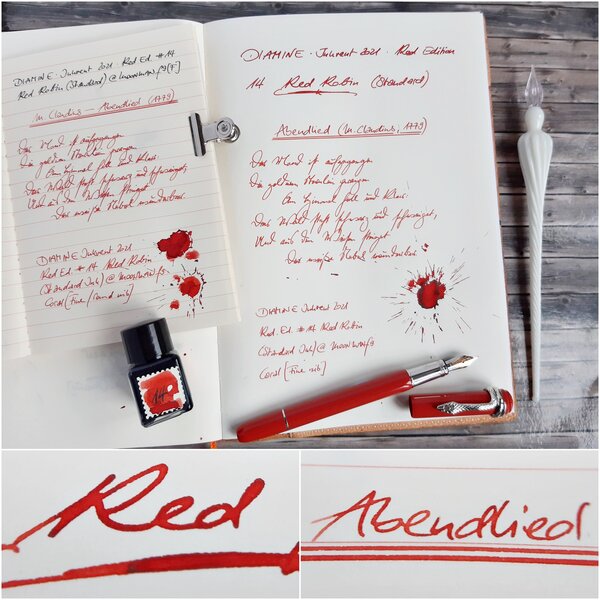 DIAMINE Inkvent 2021 Red Ed. #14
Red Robin (Standard) @ moonwan f9 [F]
M. Claudius – Abendlied (1779)
Der Mond ist aufgegangen
Die goldnen Sternlein prangen
Am Himmel hell und klar:
Der Wald steht schwarz und schweiget,
Und aus den Wiesen steiget
Der weiße Nebel wunderbar.
DIAMINE Inkvent 2021
Red Ed. #14 Red Robin
(Standard Ink) @
Coral [Fine / round nib]
DIAMINE · Inkvent 2021 · Red Edition
14 Red Robin (Standard)
Abendlied (M. Claudius, 1779)
Der Mond ist aufgegangen
Die goldnen Sternlein prangen
Am Himmel hell und klar:
Der Wald steht schwarz und schweiget,
Und aus den Wiesen steiget
Der weiße Nebel wunderbar.
DIAMINE Inkvent 2021
Red. Ed. #14 Red Robin
(Standard Ink) @
Coral [Fine nib]
Red
Abendlied